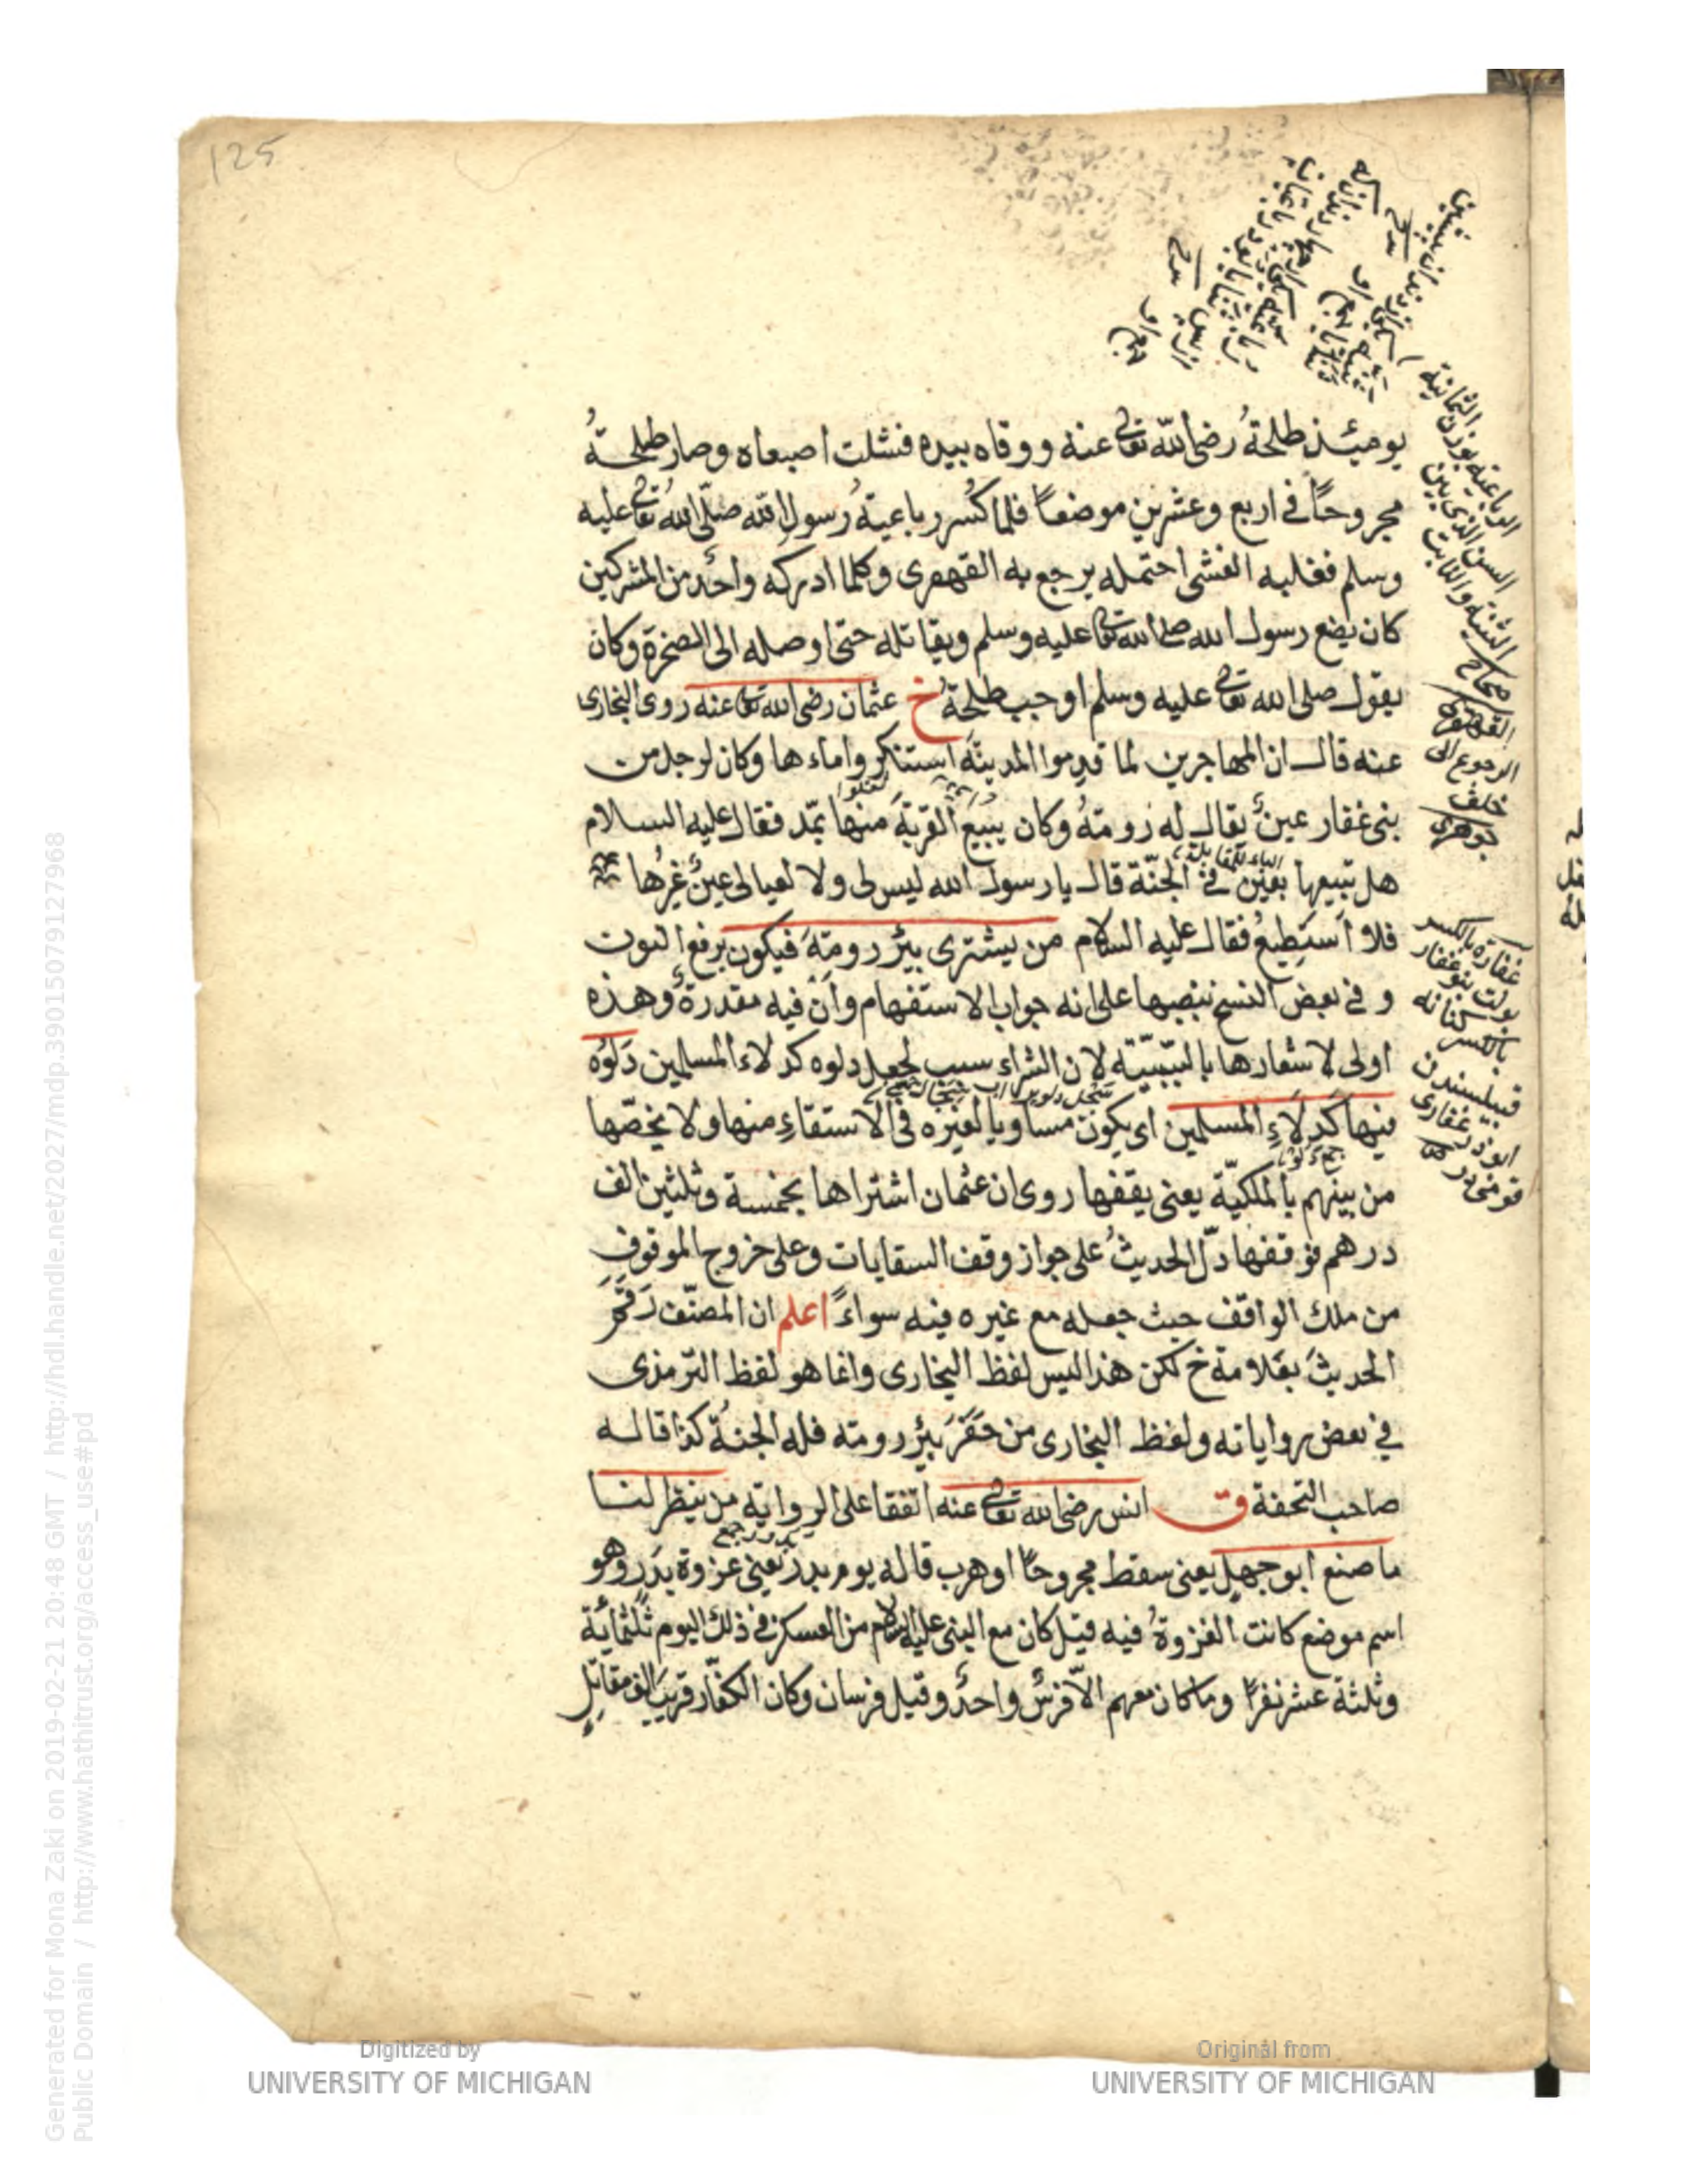 125
يومئذ طلحةُ رضى الله تعالى عنه ووقاه بيده فشلت اصبعاه وصار طلحةُ
مجروحًا فى اربع وعشرين موضعًا فلما كُسر رباعيةُ رسول الله صلّى الله تعالى عليه
وسلم فغلبه الغشى احتمله يرجع به القهقرى وكلما ادركه واحدٌ من المشركين
كان يضع رسول الله صلى الله تعالى عليه وسلم ويقاتله حتى اوصله الى الصخرة وكان
يقول صلى الله تعالى عليه وسلم اوجب طلحةُ خ عثمان رضى الله تعالى عنه روى البخارى
عنه قال ان المهاجرين لما قدموا المدينةَ استنكروا ماءها وكان لرجل من
بنى غفار عينٌ يقال له رومةُ وكان يبيعُ القربةَ منها بمّد فقال عليه السلام
هل تبيعها بعين فى الجنّة قال يا رسول الله ليس لى ولا لعيالى عينٌ غيرُها
فلا استطيعُ فقال عليه السلام من يشترى بئر رومةَ فيكون برفع النون
و فى بعض النسخ بنصبها على انه جواب الاستفهام وأن فيه مقدرةٌ وهذه
اولى لاشعارها بالسّببيّة لان الشراء سبب لجعل دلوه كدلاء المسلمين دَلْوُه
فيها كدِلَاءِ المسلمين اى يكون مساويا لغيره فى الاستقاءِ منها ولا يخصّها
من بينهم بالملكيّة يعنى يقفها روى ان عثمان اشتراها بخمسة وثلثين الف
درهم فوقفها دلّ الحديثُ على جواز وقف السقايات وعلى خروج الموقوف
من ملك الواقف حيث جعله مع غيره فيه سواءً اعلم ان المصنّف رَقَّم
الحديثَ بعلامة خ لكن هذا ليس لفظ البخارى وانما هو لفظ الترمذى
فى بعض رواياته ولفظ البخارى من حَفَرَ بئر رومة فله الجنةُ كذا قاله
صاحب التحفة ق انس رضى الله تعالى عنه اتفقا على الرواية من ينظر لنا
ما صنع ابو جهل يعنى سقط مجروحًا او هرب قاله يوم بدر يعنى غزوة بَدر وهو
اسم موضع كانت الغزوةُ فيه قيل كان مع النبى عليه السلام من العسكر فى ذلك اليوم ثلثمائة
وثلثة عشر نفرًا وما كان معهم الّا فرسٌ واحدٌ وقيل فرسان وكان الكفّار قريبَ الف مقاتل
الرباعية بوزن الثمانية
السن الذى بين
الثنية والناب
صحاح
القهقرى
الرجوع الى
خلف
جوهرى
غفارة بالكسر
بنو غفار
بالكسر كنانه
قبيلسندن
ابو ذر غفارى
Generated for Mona Zaki on 2019-02-21 20:48 GMT / http://hdl.handle.net/2027/mdp.39015079127968
Public Domain / http://www.hathitrust.org/access_use#pd
Digitized by
UNIVERSITY OF MICHIGAN
Original from
UNIVERSITY OF MICHIGAN